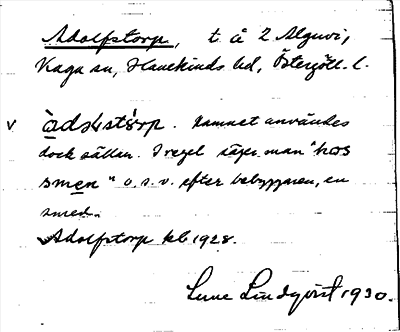 Adolfstorp, t. å 2 Alguvi,
Kaga sn, Hanekinds hd, Östergötl. l.
v àdɷlstórp. Namnet användes
dock sällan. I regel säger man "hos
smen" o.s.v. efter bebyggaren, en
smed.
Adolfstorp kb 1928.
Sune Lindqvist 1930.